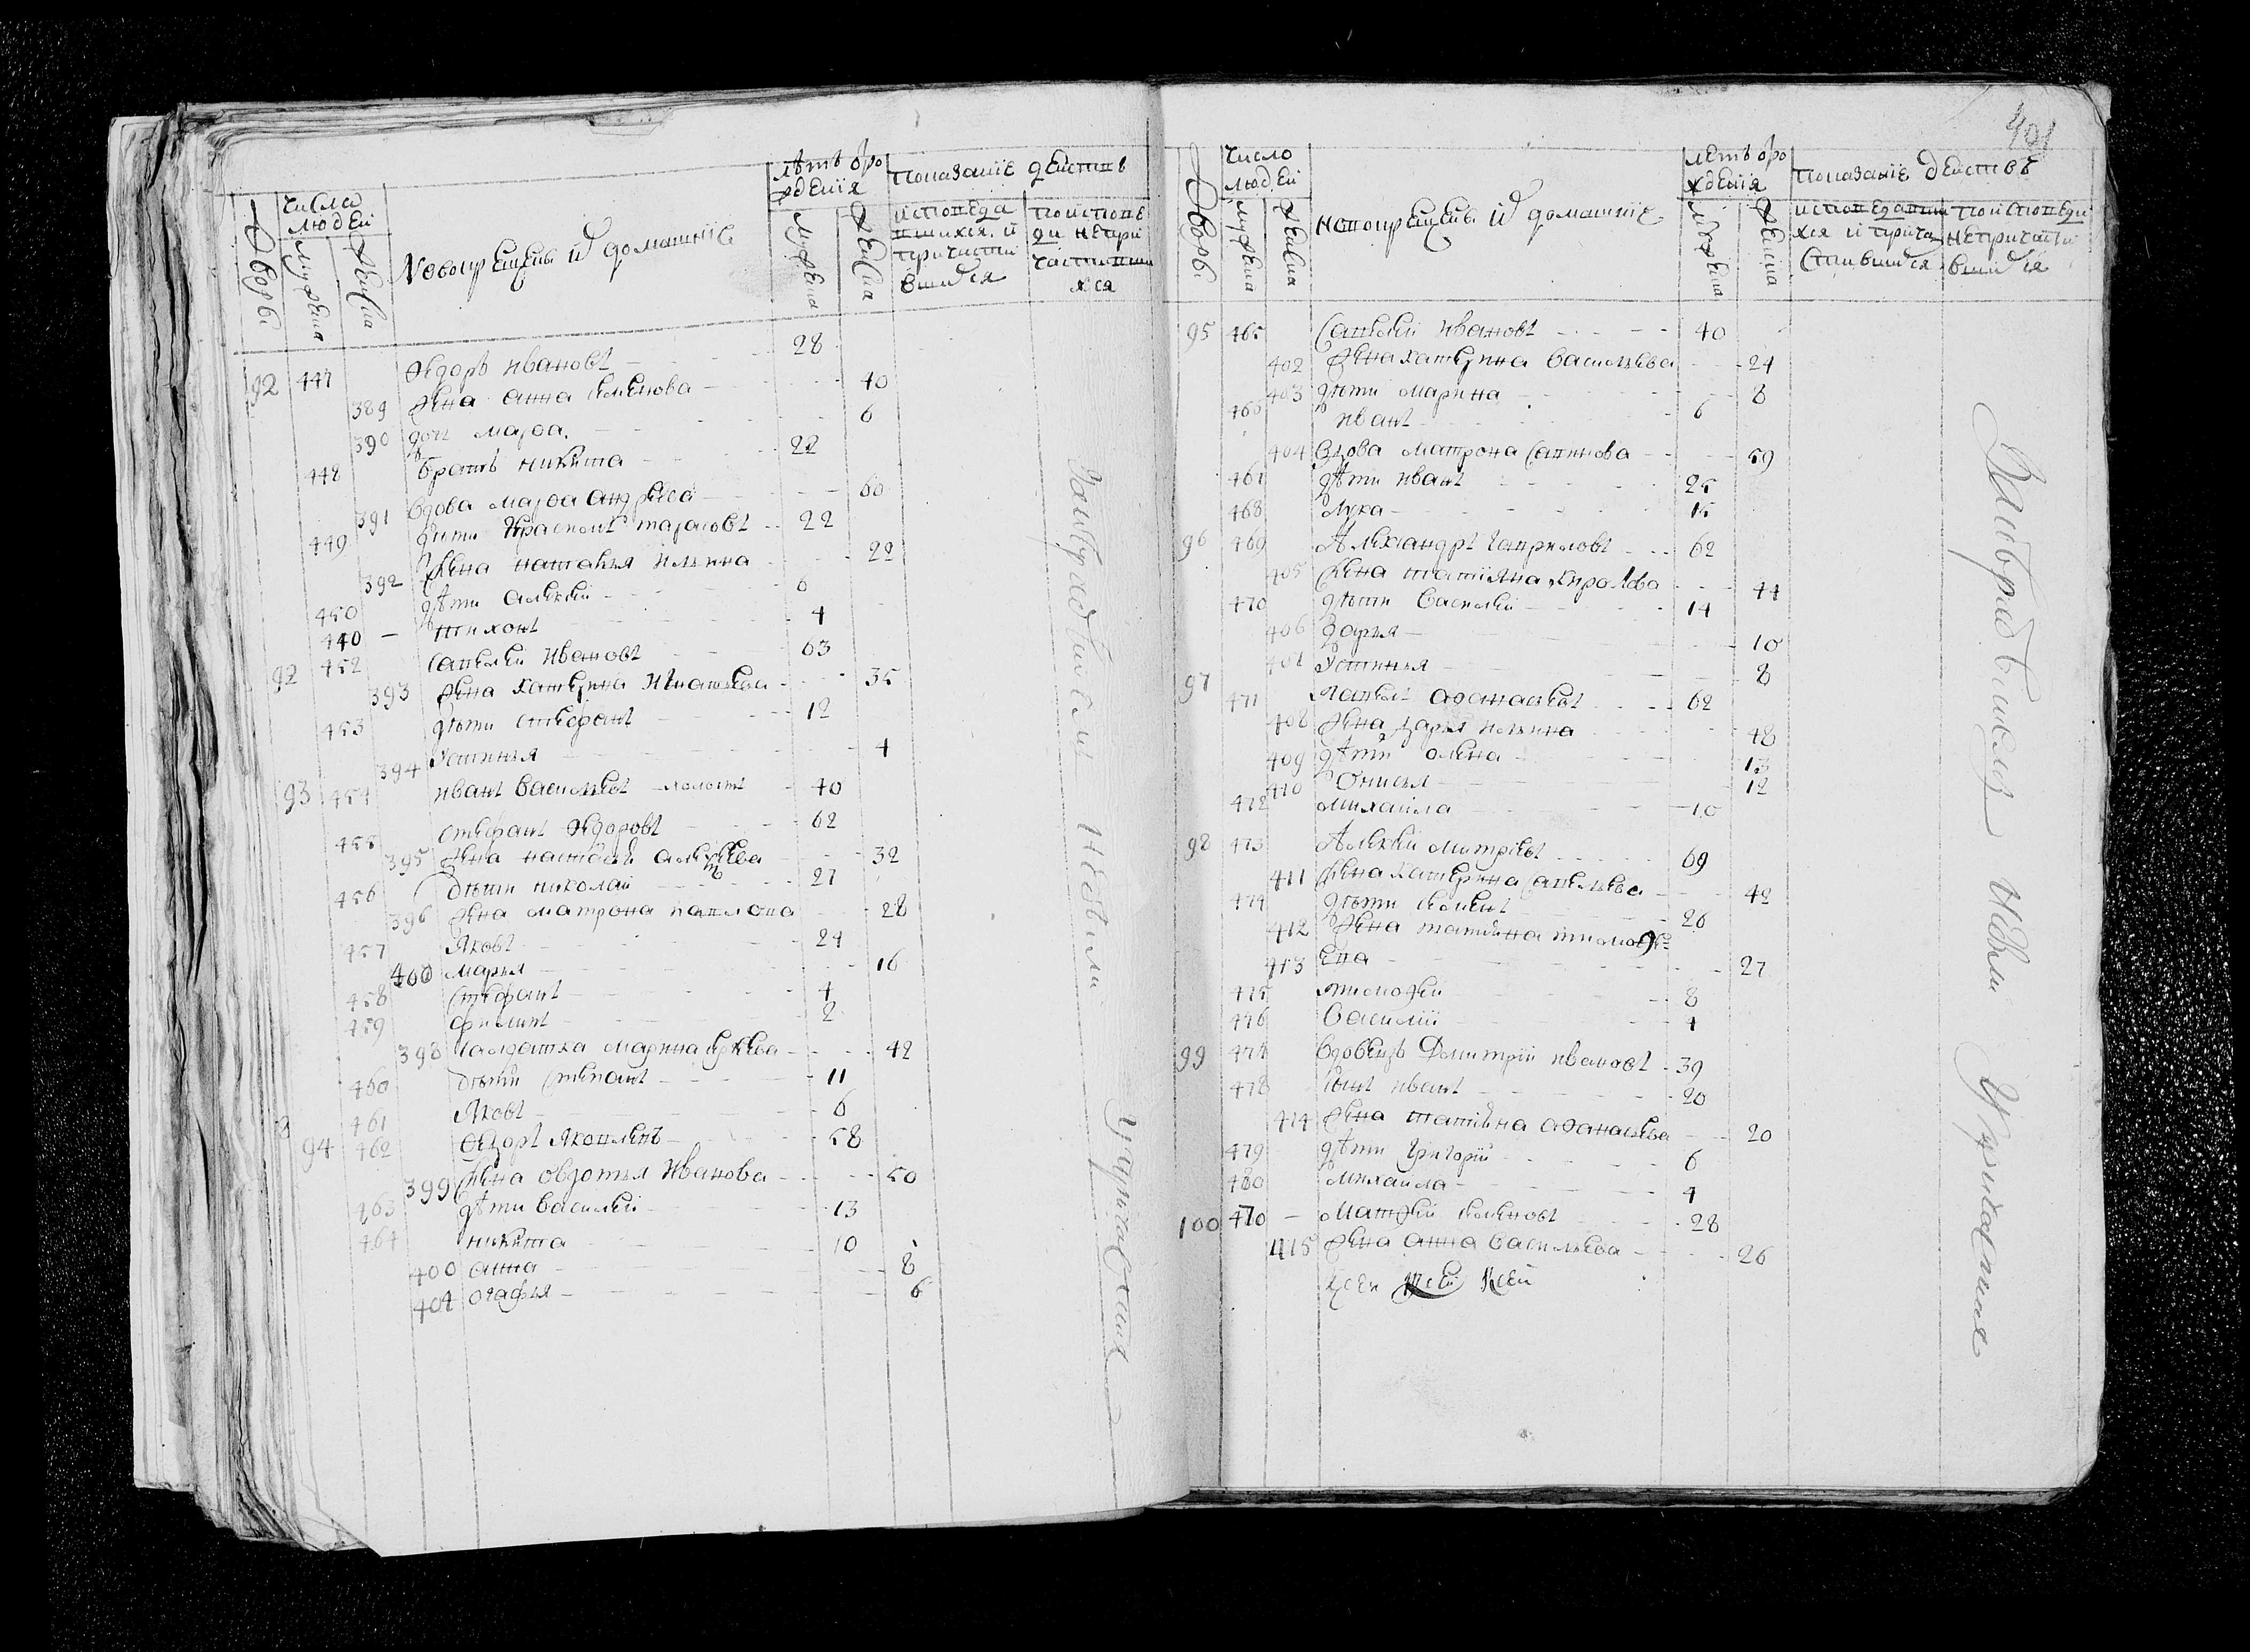 Дворы
числа людей
мужеска
женска
Новокрещены и домашние
лѣтъ от рождения
мужеска
женска
показание действъ
исповедавшихся и причастившихся
по исповеди не причастившихся
92 447 Федоръ Ивановъ 28
389 жена Анна Семенова 40
390 дочь Марфа 6
448 братъ Никита 22
391 вдова Марфа Андреева 60
449 дети тарасовъ 22
392 жена Наталья Ильина 22
450 дѣти Алексей 6
440 Тихонъ 4
92 452 Савелей Ивановъ 63
393 жена Катерина Игнатьева 35
453 дѣти Стефанъ 12
394 Устинья 4
93 454 Иванъ Васильевъ холостъ 40
455 Стефанъ Федоровъ 62
395 жена Настасья Алексеева 32
456 дѣти Николай 27
396 жена Матрона Павлова 28
457 Яковъ 24
400 Марья 16
458 Стефанъ 4
459 Филипъ 2
398 салдатка Марина 42
460 дѣти Степанъ 11
461 Яковъ 6
94 462 Федоръ Яковлевъ 58
399 жена Овдотья Иванова 50
463 дѣти Василей 13
464 Никита 10
400 Анна 8
401 Огафья 6
401
Дворы
число людей
мужеска
женска
новокрещены и домашние
летъ от рождения
мужеска
женска
показание действъ
исповедавшихся и причастившихся
по исповеди не причастившихся
95 465 Савелей Ивановъ 40
402 жена Катерина Васильева 24
403 дѣти Марина 8
466 Иванъ 6
404 вдова Матрона Савинова 59
467 дѣти Иванъ 25
468 Лука 15
96 469 Александръ Гавриловъ 62
405 жена Татияна 44
470 дѣти Василей 14
406 Дарья 10
407 Устинья 8
97 471 Павелъ Афанасьевъ 62
408 жена Дарья Ильина 48
409 дѣти Олена 13
410 Онисья 12
472 Михайла 10
98 473 Алексей Митриевъ 69
411 жена Катерина Савельева 42
474 дѣти Семенъ 26
412 жена Татияна Тимофе
413 ева 27
475 Тимофей 8
476 Василий 4
99 477 вдовецъ Димитрий Ивановъ 39
478 сынъ Иванъ 20
414 жена Татияна Афанасьева 20
479 дѣти Григорий 6
480 Михайла 4
100 470 Матфей Семеновъ 28
415 жена Анна Васильева 26